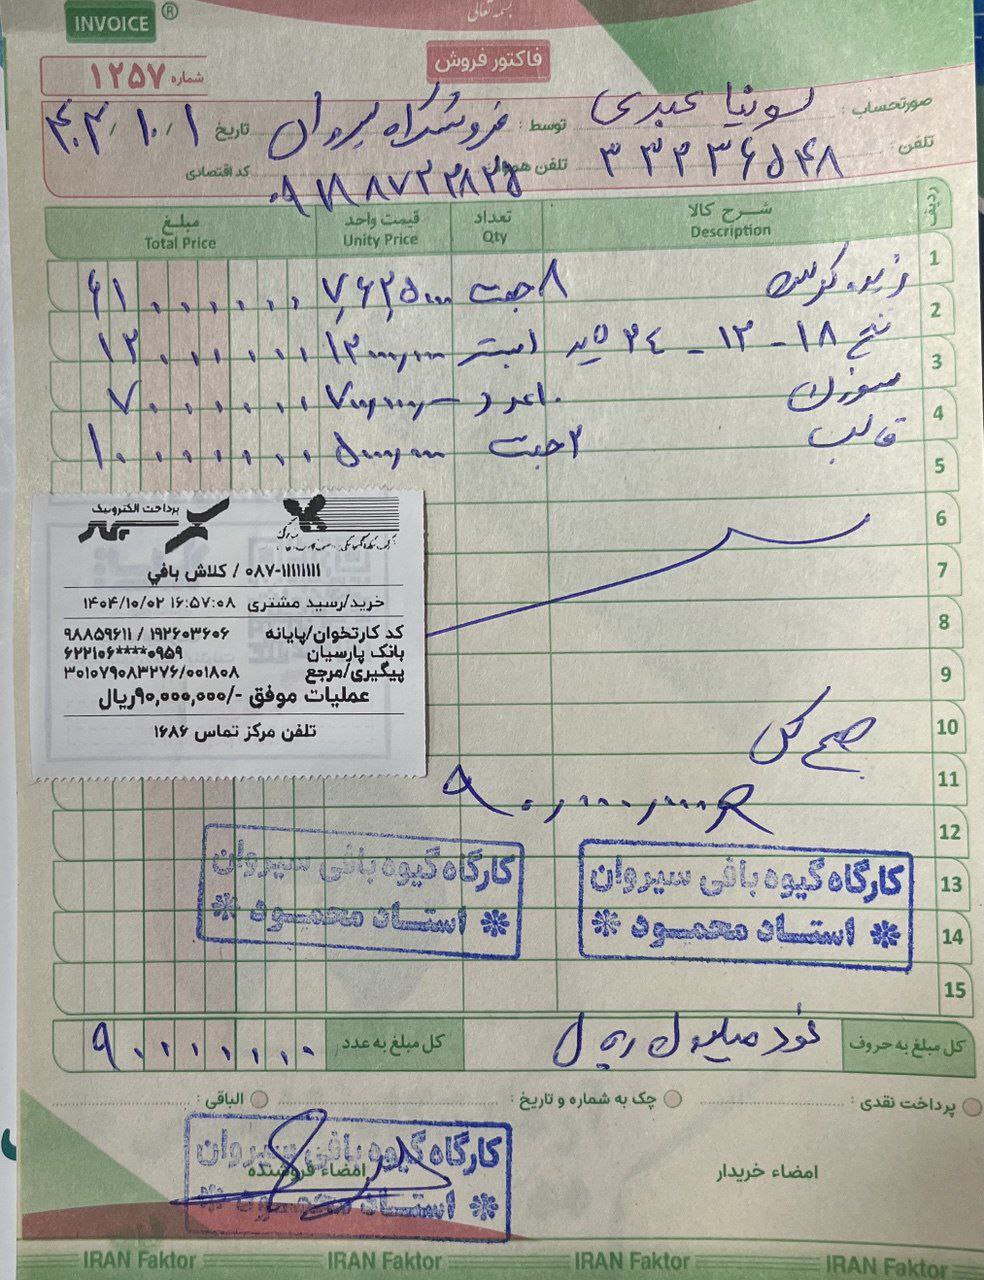 بسمه تعالی
INVOICE ®
فاکتور فروش
شماره ۱۲۵۷
صورتحساب : سونیا عبدی توسط : فروشگاه سیروان تاریخ ۴۰۴/۱۰/۱
تلفن : ۳۳۲۳۶۵۴۸ تلفن همراه کد اقتصادی
ردیف شرح کالا تعداد قیمت واحد مبلغ
Description Qty Unity Price Total Price
1 زیره گیوه ۸ جفت ۷,۶۲۵۰۰۰ ۶۱۰۰۰۰۰۰
2 نخ ۱۸ - ۱۲ - ۲۴ لایه ۱ بسته ۱۲۰۰۰,۰۰۰ ۱۲۰۰۰۰۰۰
3 سوزن ۱۰ عدد ۷۰۰,۰۰۰ ۷۰۰۰۰۰۰
4 قالب ۲ جفت ۵۰۰۰,۰۰۰ ۱۰۰۰۰۰۰۰
5
6
7
8
9
10 جمع کل
11 ۹۰,۰۰۰,۰۰۰
12
13
14
15
پرداخت الکترونیک
سپهر
۰۸۷-۱۱۱۱۱۱۱۱ / کلاش بافي
خرید/رسید مشتری ۱۴۰۴/۱۰/۰۲ ۱۶:۵۷:۰۸
کد کارتخوان/پایانه ۱۹۲۶۰۳۶۰۶ / ۹۸۸۵۹۶۱۱
بانک پارسیان ۶۲۲۱۰۶****۰۹۵۹
پیگیری/مرجع ۳۰۱۰۷۹۰۸۳۲۷۶/۰۰۱۸۰۸
عملیات موفق -/۹۰,۰۰۰,۰۰۰ریال
تلفن مرکز تماس ۱۶۸۶
کارگاه گیوه بافی سیروان
* استاد محمود *
کارگاه گیوه بافی سیروان
* استاد محمود *
کل مبلغ به حروف نود میلیون ریال کل مبلغ به عدد ۹۰۰۰۰۰۰۰
پرداخت نقدی : چک به شماره و تاریخ : الباقی :
امضاء خریدار امضاء فروشنده
کارگاه گیوه بافی سیروان
* استاد محمود *
IRAN Faktor IRAN Faktor IRAN Faktor IRAN Faktor